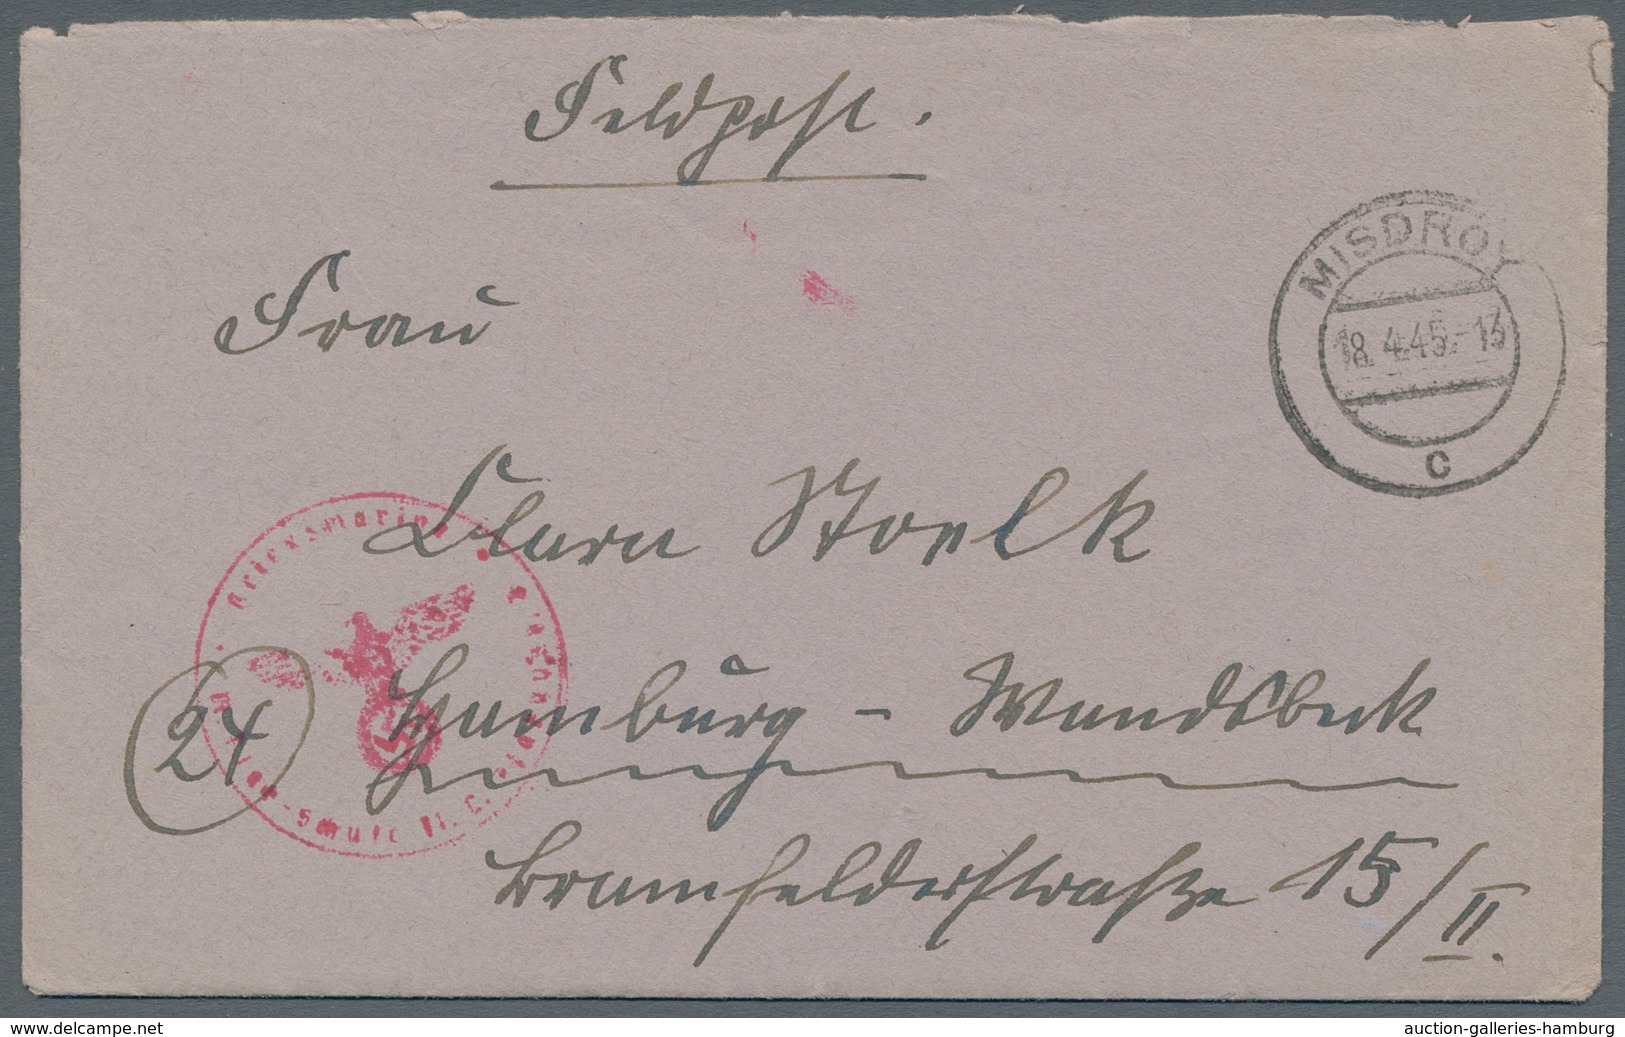 Feldpost.
MISDROY
18.4.45.-13
c
Frau
Clara Stoelk
Kriegsmarine
(24) Hamburg - Wandsbeck
Bramfelderstraße 15/II.
www.delcampe.net
auction-galleries-hamburg